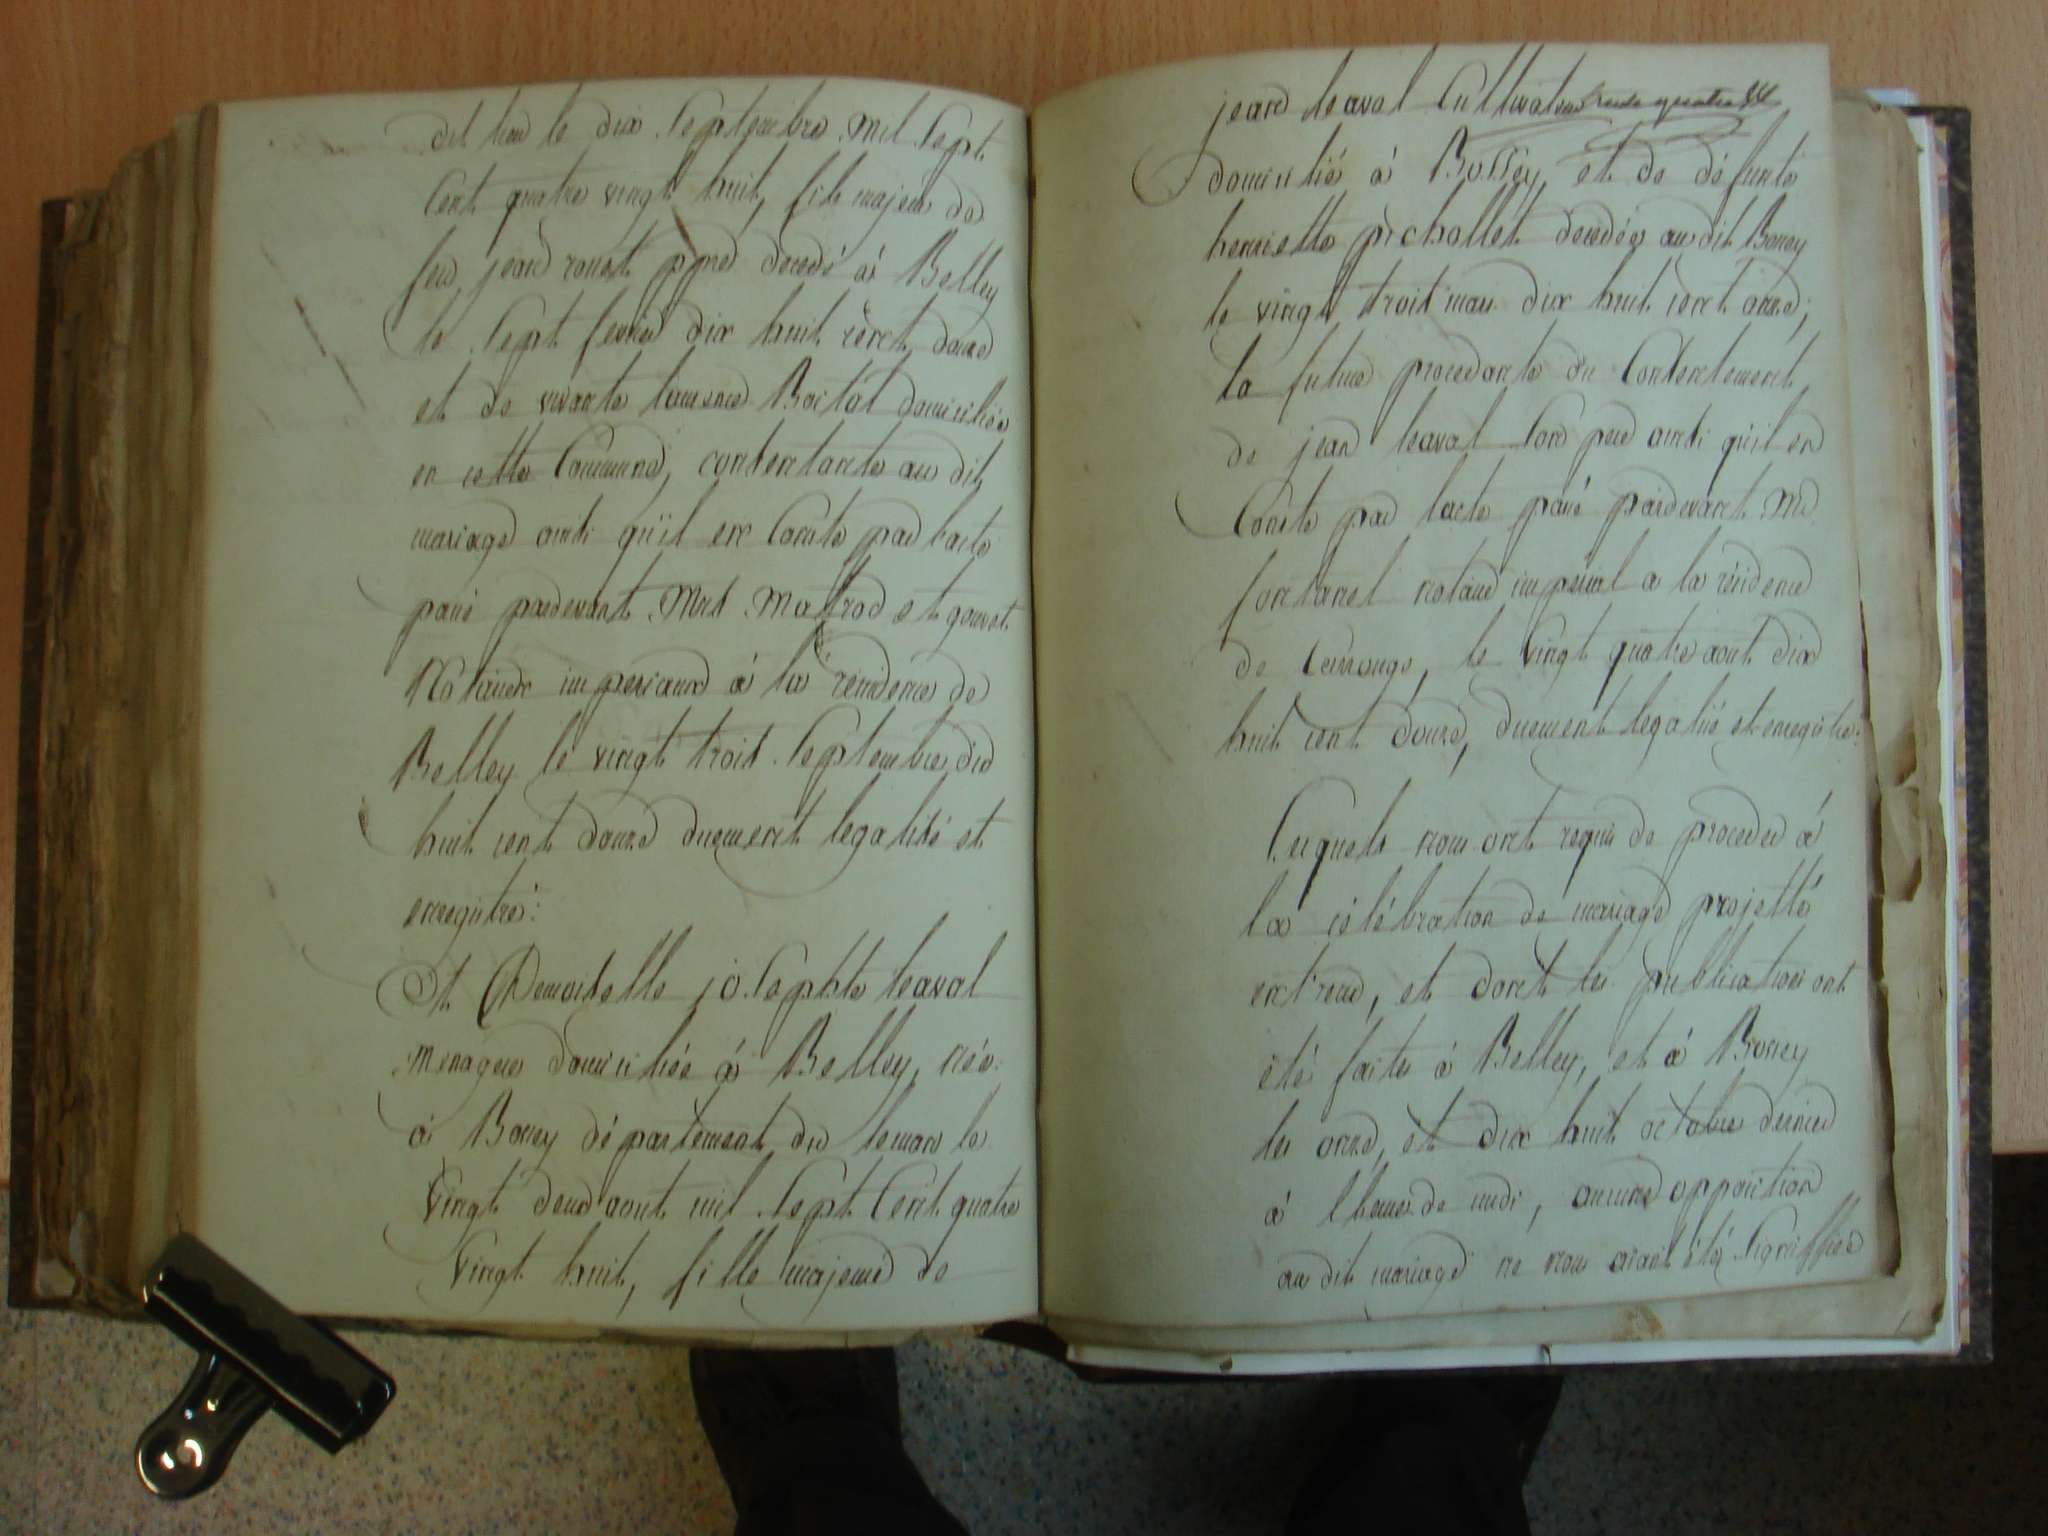 dit lieu le dix Septembre mil Sept
Cent quatre vingt huit, fils majeur de
feu jean rouet decedé à Belley
le Sept fevrier dix huit cent douze
et de vivante laurence domiciliée
en cette Commune, consentante au dit
mariage ainsi qu'il en Conste par l'acte
passé pardevant Mes et gouvet
Notaires imperiaux à la résidence de
Belley le vingt trois Septembre dix
huit cent douze duement legalisé et
enregistré:
Et Demoiselle josephte leaval
menagere domiciliée à Belley, née
à Bossey département du leman le
vingt deux aout mil Sept Cent quatre
vingt huit, fille majeure de
jean leaval Cultivateur trente quatre 34
domicilié à Bossey et de défunte
henriette pichollet decedée au dit Bossey
le vingt trois mars dix huit cent onze;
la future procedante du Consentement
de jean leaval Son pere ainsi qu'il en
Conste par l'acte passé pardevant Me
fontanel notaire imperial a la résidence
de , le vingt quatre aout dix
huit cent douze, duement legalisé et enregistré:
Lesquels nous ont requis de proceder à
la célébration de mariage projetté
entr'eux, et dont les publications ont
été faites à Belley, et à Bossey
les onze, et dix huit octobre dernier
à l'heure de midi, aucune opposition
au dit mariage ne nous aiant été Signiffiée